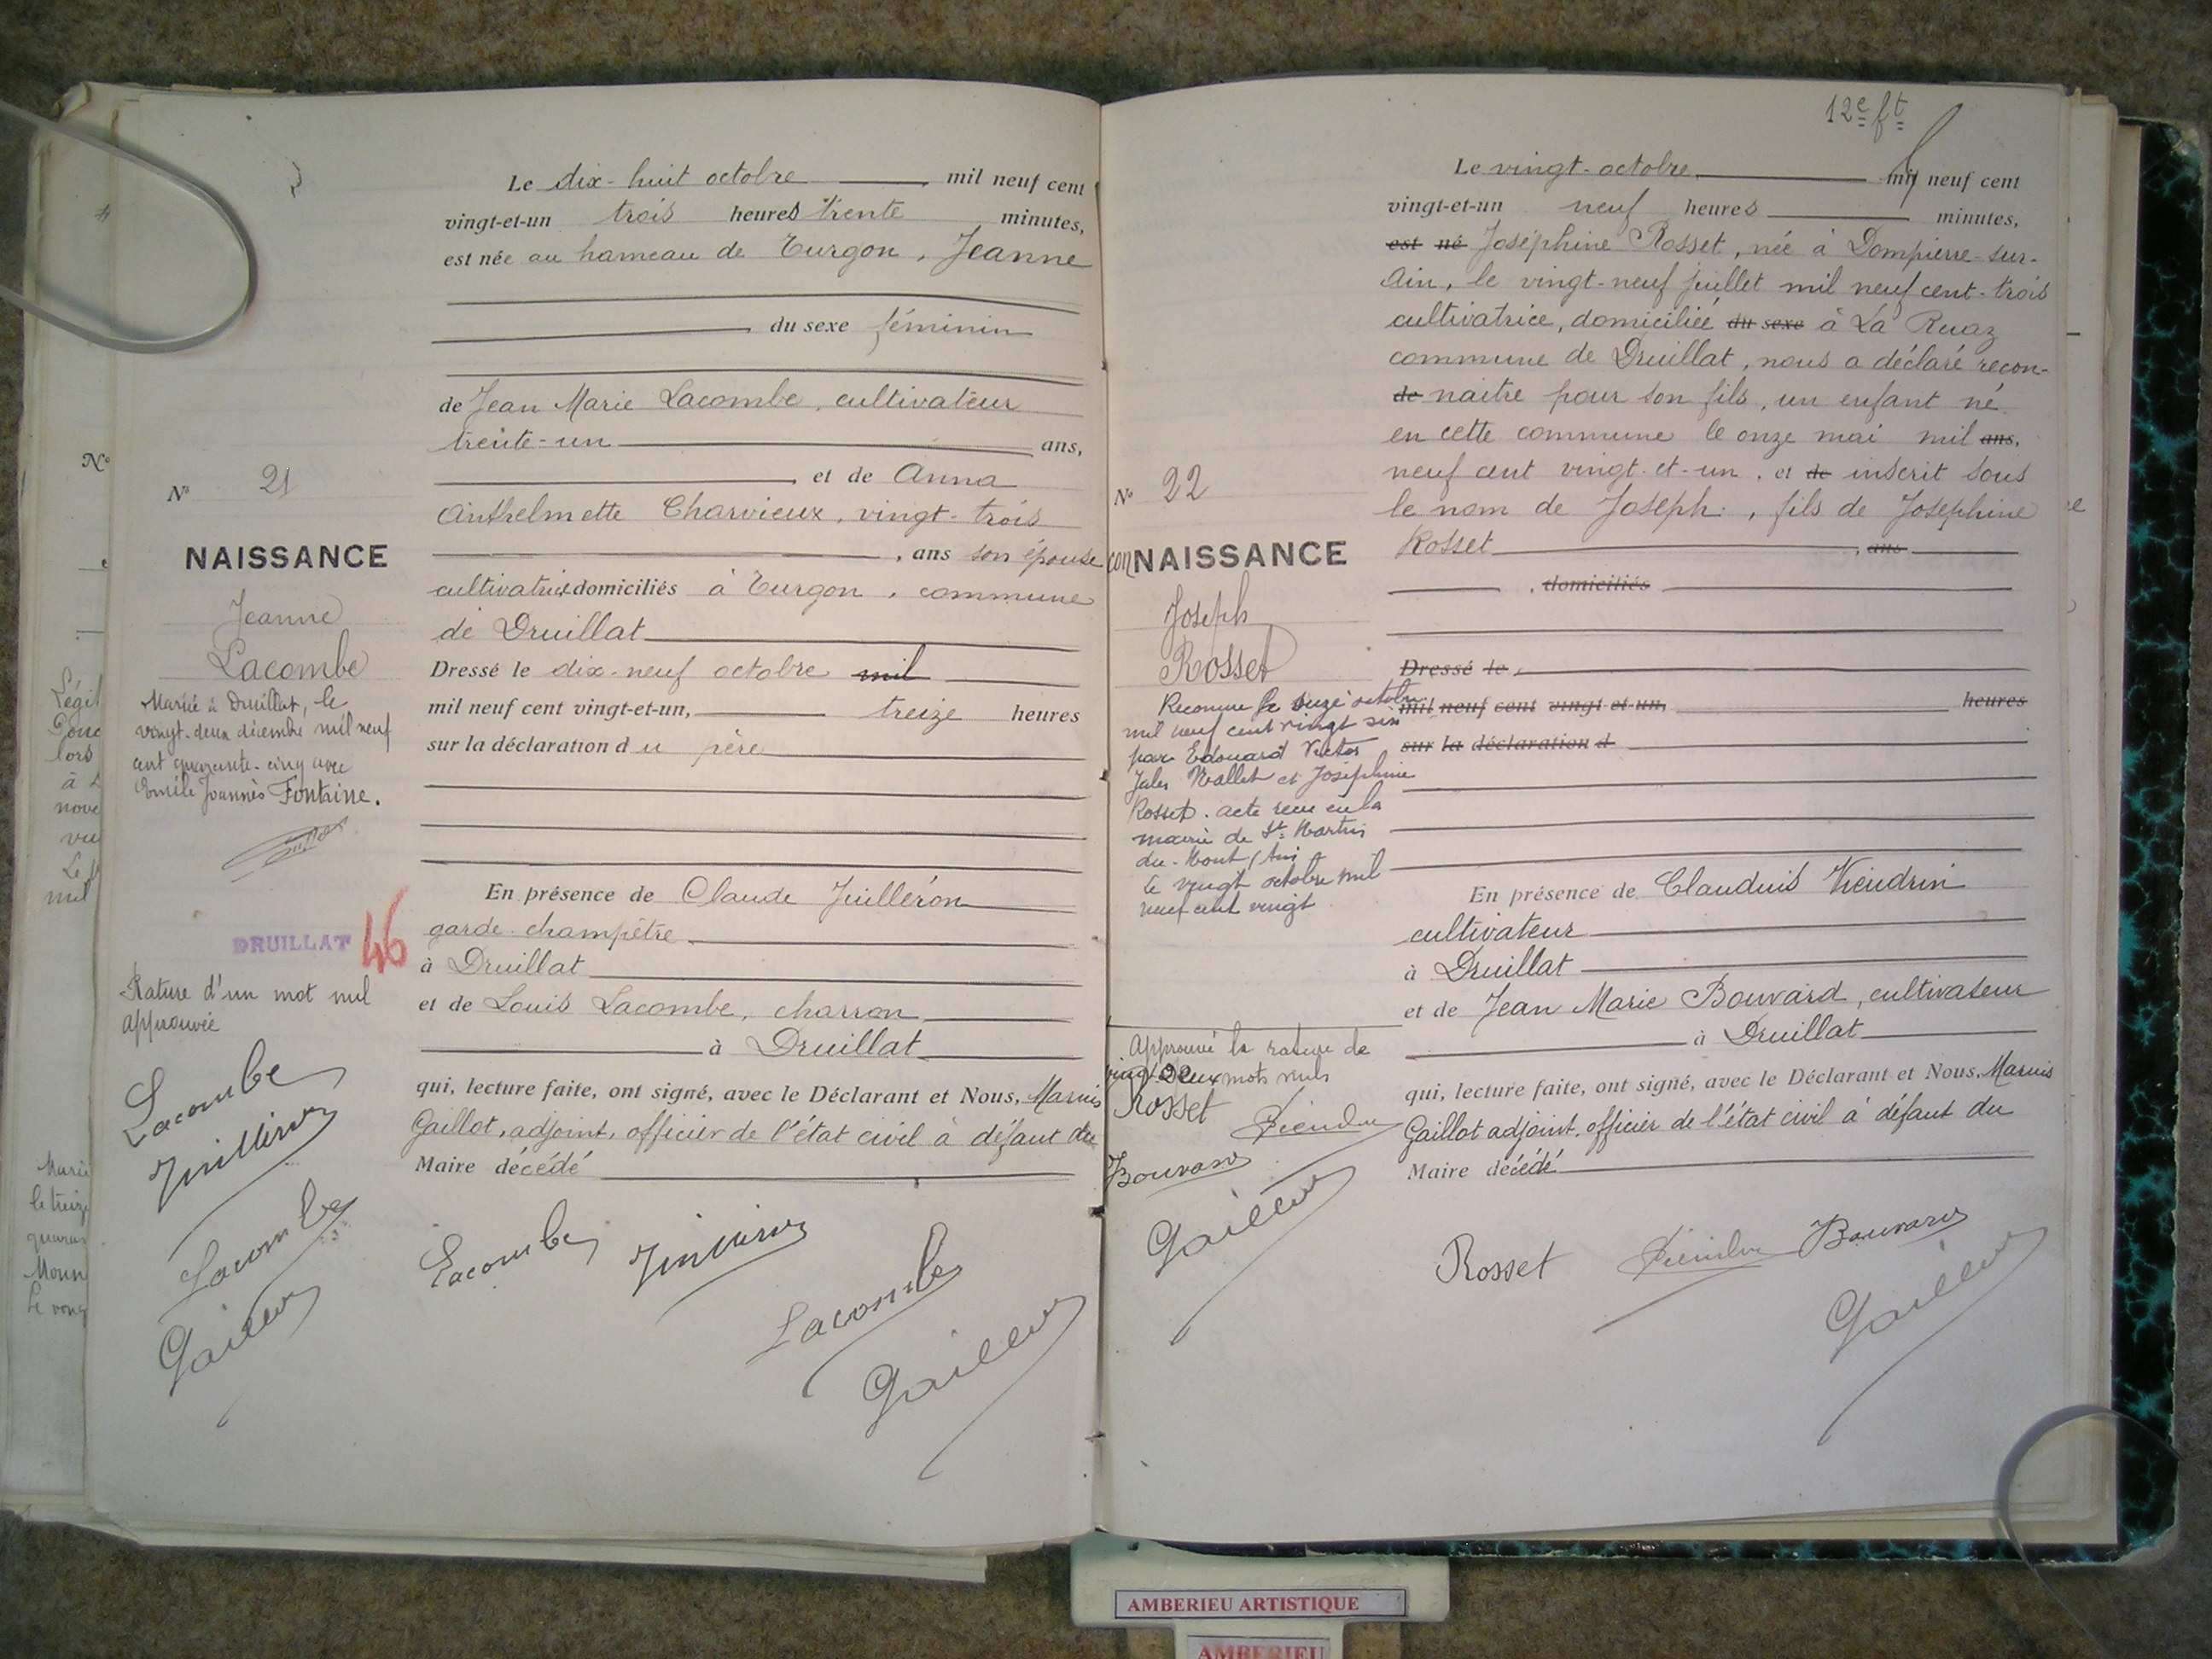 Le dix-huit octobre mil neuf cent
vingt-et-un trois heures trente minutes,
est née au hameau de Turgon, Jeanne
du sexe féminin
de Jean Marie Lacombe, cultivateur
trente-un ans,
et de Anna
Anthelmette Charvieux, vingt-trois
, ans son épouse
cultivatrice domiciliés à Turgon, commune
de Druillat
Dressé le dix-neuf octobre mil
mil neuf cent vingt-et-un, treize heures
sur la déclaration du père
En présence de Claude Juilléron
garde-champêtre
à Druillat
et de Louis Lacombe, charron
à Druillat
qui, lecture faite, ont signé, avec le Déclarant et Nous, Marius
Gaillot, adjoint, officier de l'état civil à défaut du
Maire décédé
Lacombe
Lacombe
N° 21
NAISSANCE
Jeanne
Lacombe
Mariée à Druillat, le
vingt-deux décembre mil neuf
cent quarante-cinq avec
Emile Joannès Fontaine.
DRUILLAT 46
Rature d'un mot nul
approuvée
Lacombe
Lacombe
N°
12e ft
Le vingt-octobre mil neuf cent
vingt-et-un neuf heures minutes,
est né Joséphine Rosset, née à Dompierre-sur-
Ain, le vingt-neuf juillet mil neuf cent-trois
cultivatrice, domiciliée du sexe à La Ruaz
commune de Druillat, nous a déclaré recon-
de naitre pour son fils, un enfant né
en cette commune le onze mai mil ans,
neuf cent vingt-et-un, et de inscrit sous
le nom de Joseph, fils de Joséphine
Rosset , ans
, domiciliés
Dressé le
mil neuf cent vingt-et-un, heures
sur la déclaration d
En présence de Claudius
cultivateur
à Druillat
et de Jean Marie Bouvard, cultivateur
à Druillat
qui, lecture faite, ont signé, avec le Déclarant et Nous, Marius
Gaillot adjoint, officier de l'état civil à défaut du
Maire décédé
Rosset Bouvard
N° 22
conNAISSANCE
Joseph
Rosset
Reconnu le onze octobre
mil neuf cent vingt six
par Edouard Victor
Jules et Joséphine
Rosset. acte reçu en la
mairie de St Martin
du-Mont (Ain
le vingt octobre mil
neuf cent vingt
Approuvé la rature de
vingt deux mots nuls
Rosset
Bouvard
AMBERIEU ARTISTIQUE
AMBERIEU